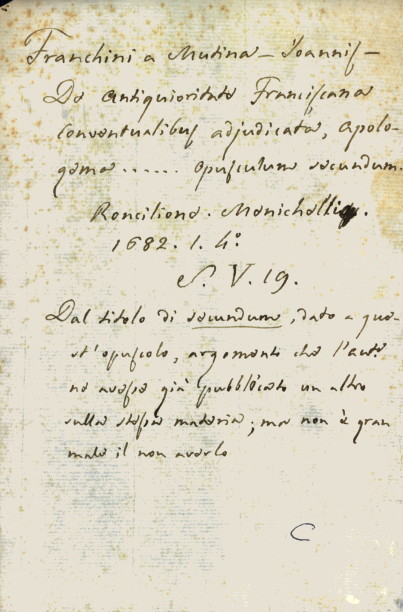 Franchini a Mutina - Joannis -
De antiquioritate Franciscana
conventualibus adjudicata, apolo-
gema ...... opusculum secundum.
Roncilione. Menichelli.
1682. 1. 4º
S. V. 19.
Dal titolo di secundum, dato a que-
st'opuscolo, argomento che l'auto
ne avesse già pubblicato un altro
sulla stessa materia; ma non è gran
male il non averlo
C